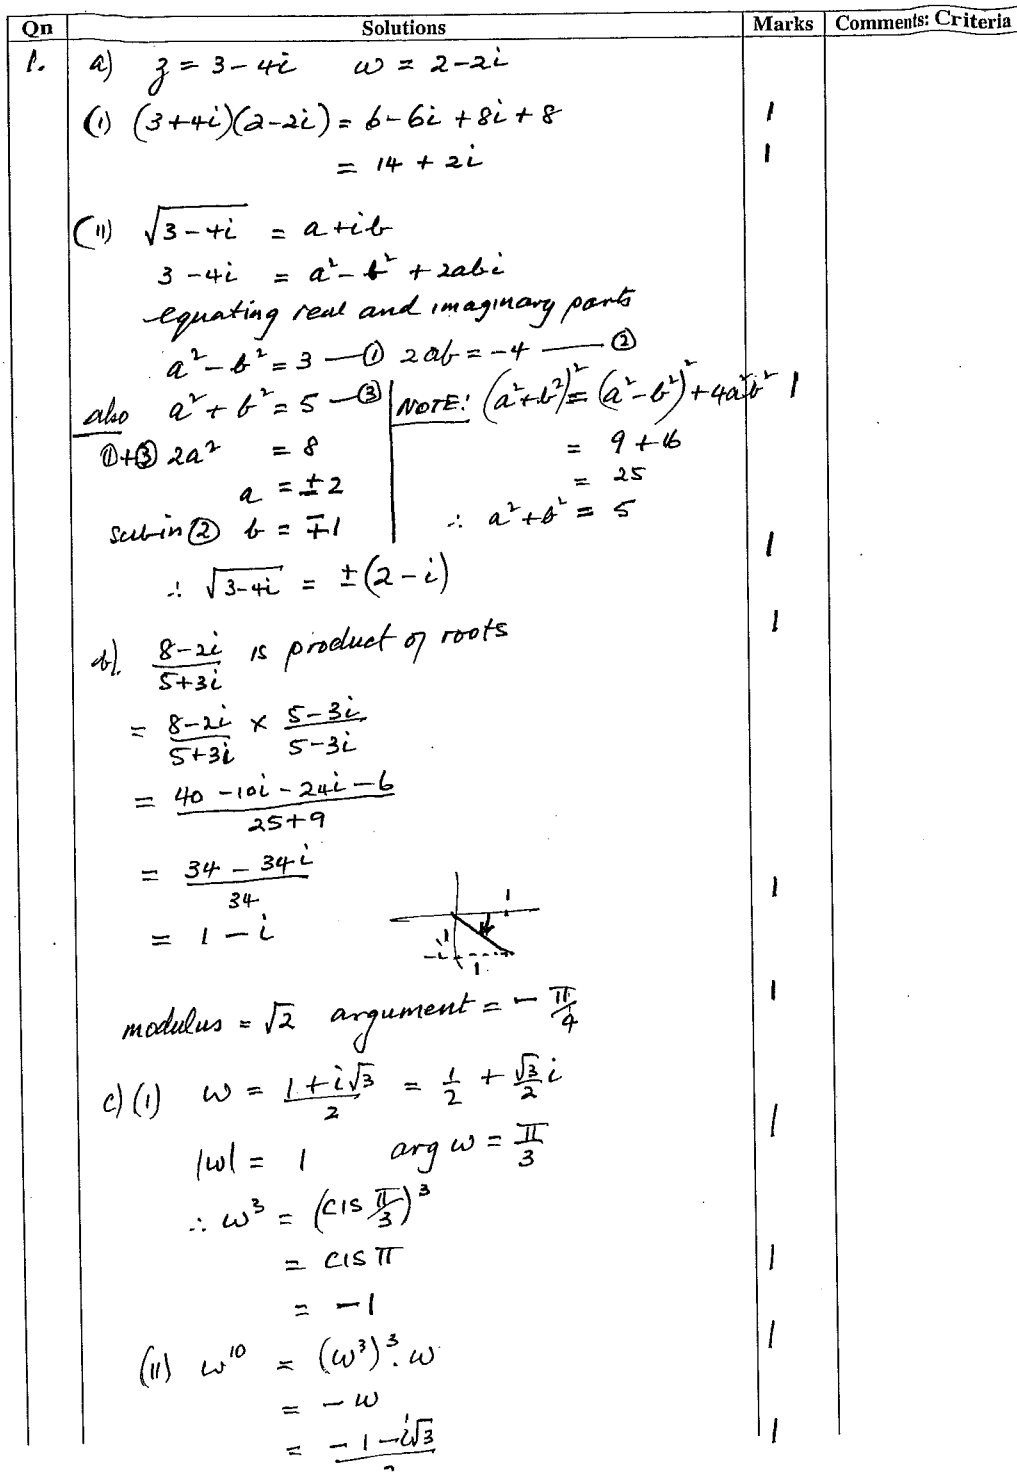 Qn Solutions Marks Comments: Criteria
1. a) z = 3 - 4i w = 2 - 2i
(i) (3+4i)(2-2i) = 6 - 6i + 8i + 8 1
= 14 + 2i 1
(ii) √(3-4i) = a + ib
3 - 4i = a² - b² + 2abi
equating real and imaginary parts
a² - b² = 3 — ① 2ab = -4 — ②
also a² + b² = 5 — ③ NOTE: (a²+b²)² = (a²-b²)² + 4a²b² 1
①+③ 2a² = 8 = 9 + 16
a = ±2 = 25
sub in ② b = ∓1 ∴ a² + b² = 5
1
∴ √(3-4i) = ±(2 - i)
1
b). (8-2i)/(5+3i) is product of roots
= (8-2i)/(5+3i) × (5-3i)/(5-3i)
= (40 - 10i - 24i - 6)/(25+9)
= (34 - 34i)/34 1
= 1 - i
1
1
-i
1
modulus = √2 argument = -π/4 1
c) (i) w = (1+i√3)/2 = 1/2 + √3/2 i
|w| = 1 arg w = π/3 1
∴ w³ = (cis π/3)³
= cis π 1
= -1
(ii) w¹⁰ = (w³)³.w 1
= -w
= (-1-i√3)/2 1